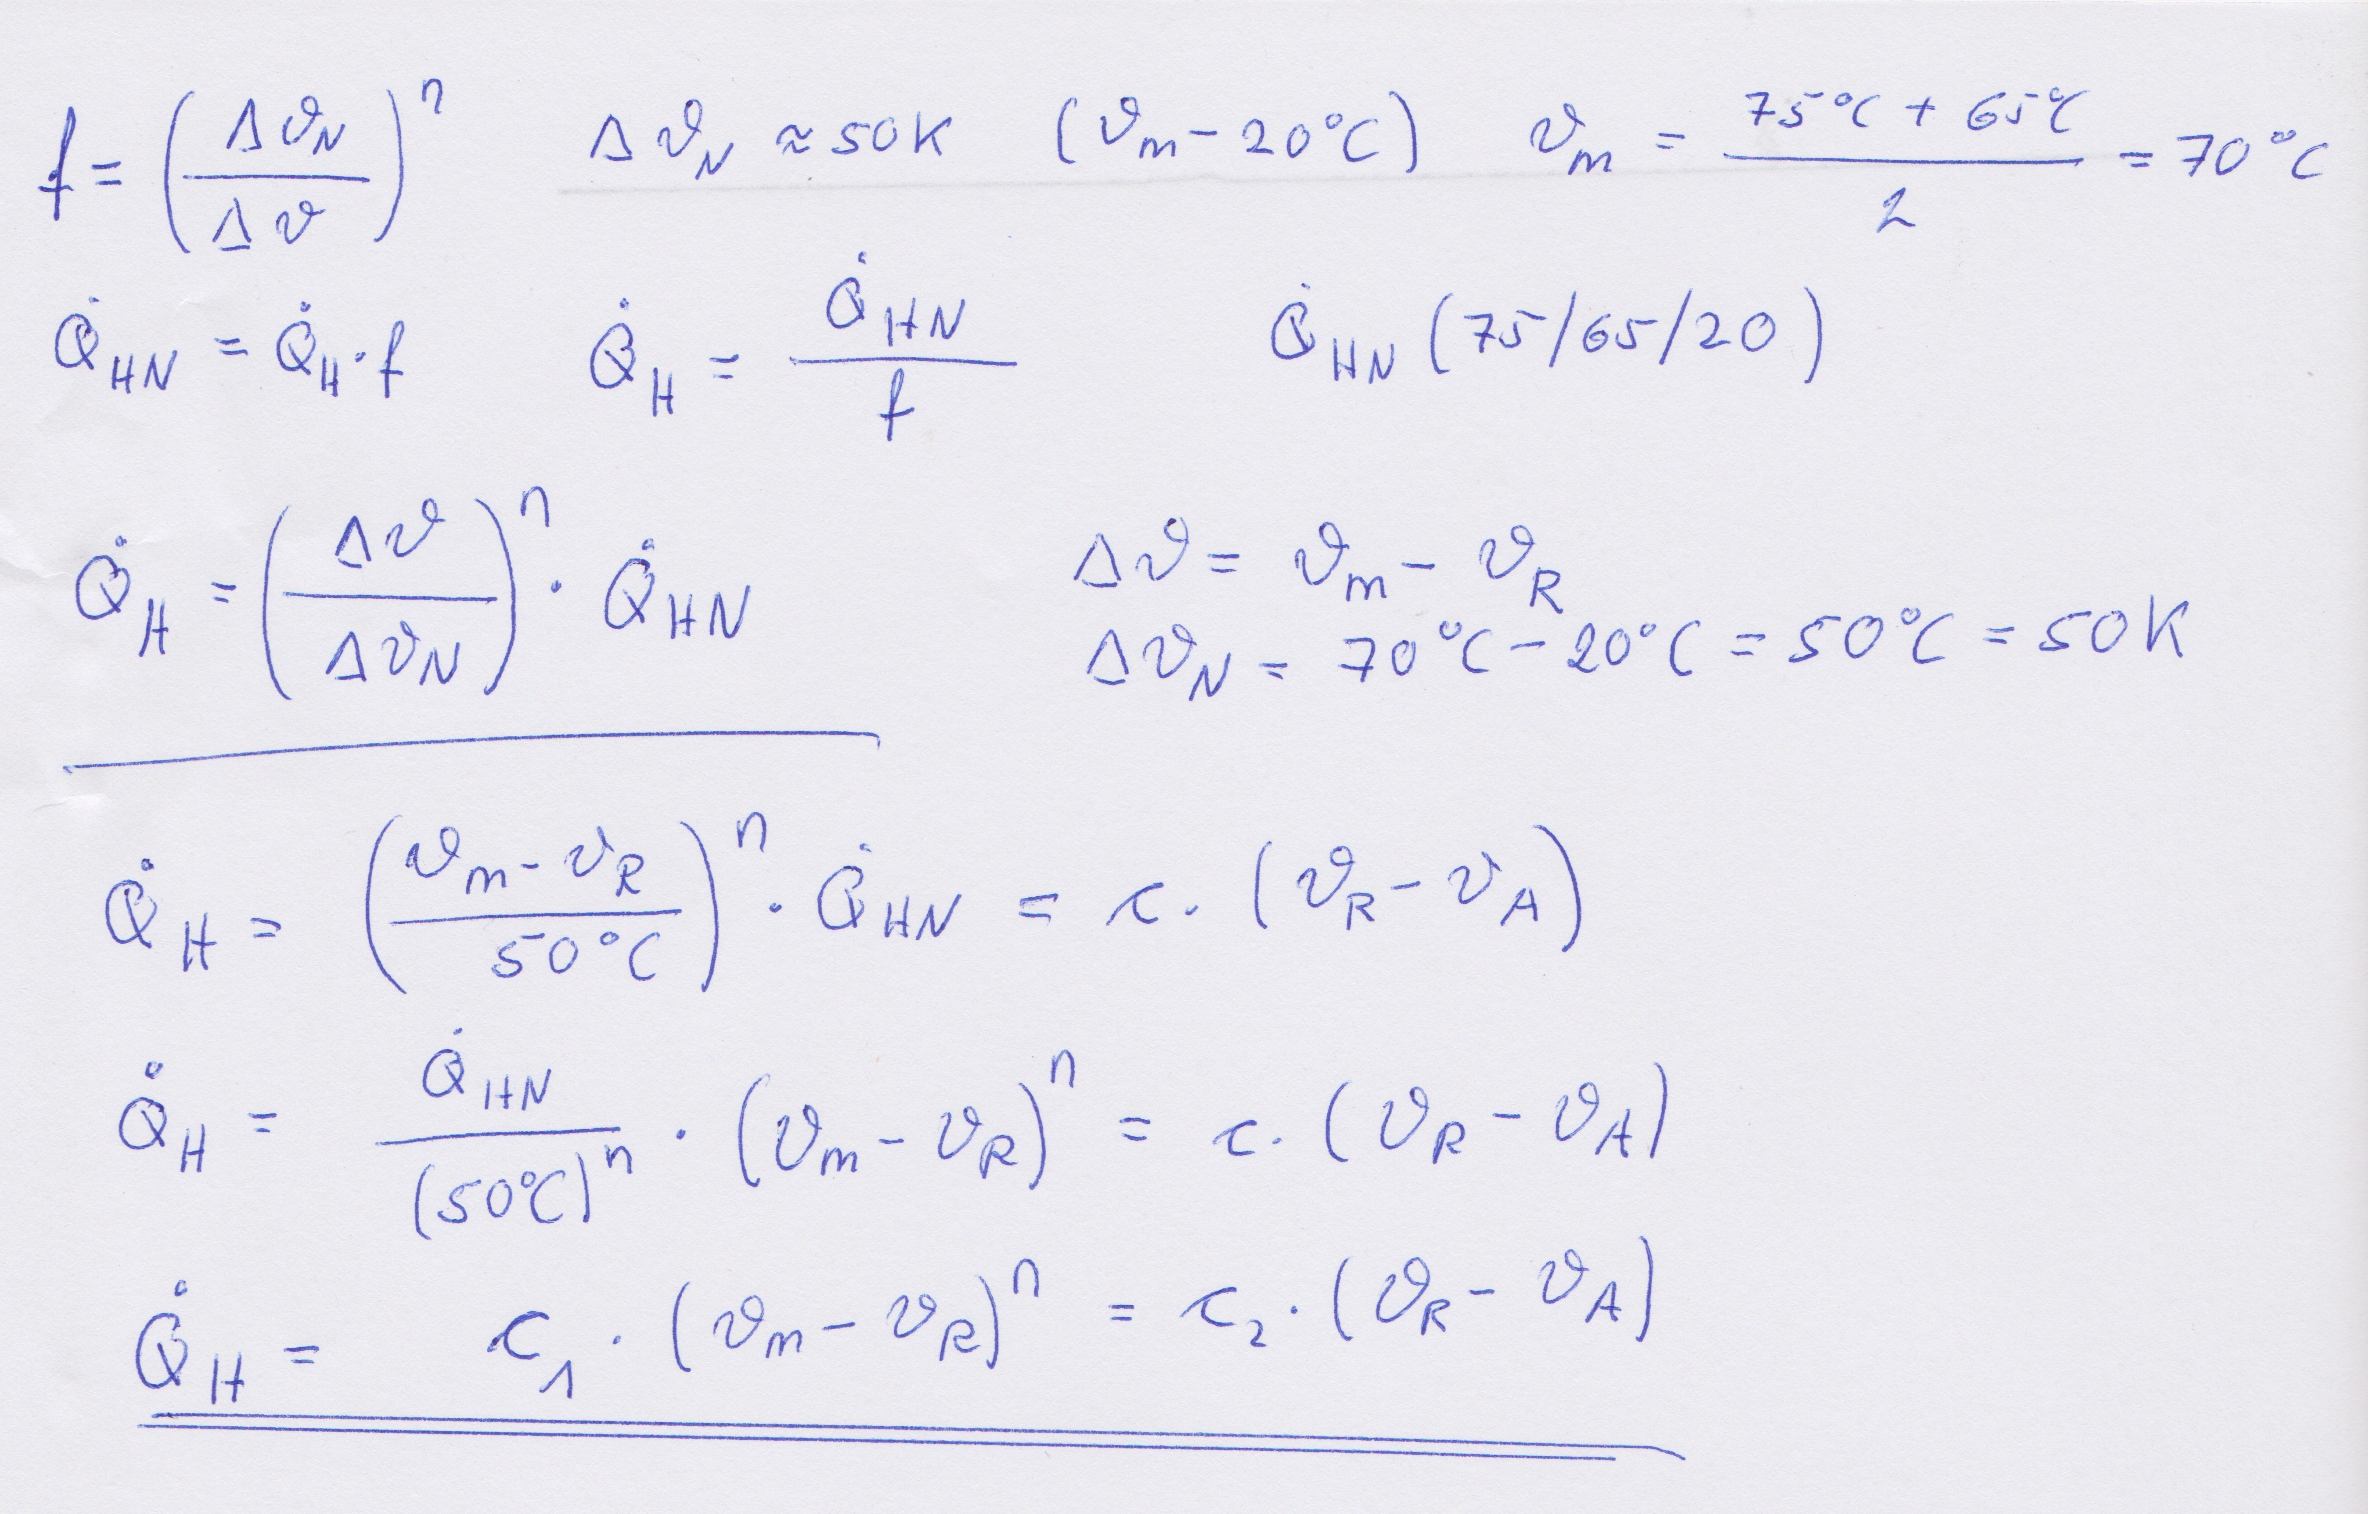 f = (Δϑ_N / Δϑ)^n   Δϑ_N ≈ 50K   (ϑ_m − 20°C)   ϑ_m = (75°C + 65°C) / 2 = 70°C
Q̇_HN = Q̇_H · f   Q̇_H = Q̇_HN / f   Q̇_HN (75/65/20)
Q̇_H = (Δϑ / Δϑ_N)^n · Q̇_HN   Δϑ = ϑ_m − ϑ_R
Δϑ_N = 70°C − 20°C = 50°C = 50K
Q̇_H = ((ϑ_m − ϑ_R) / 50°C)^n · Q̇_HN = c · (ϑ_R − ϑ_A)
Q̇_H = Q̇_HN / (50°C)^n · (ϑ_m − ϑ_R)^n = c · (ϑ_R − ϑ_A)
Q̇_H = c_1 · (ϑ_m − ϑ_R)^n = c_2 · (ϑ_R − ϑ_A)